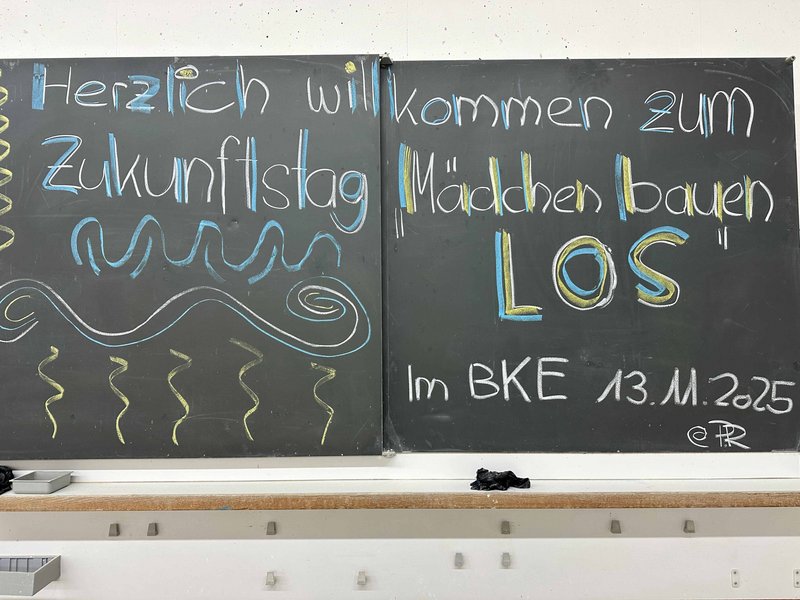 Herzlich willkommen zum
Zukunftstag "Mädchen bauen
LOS"
Im BKE 13.11.2025
© PR